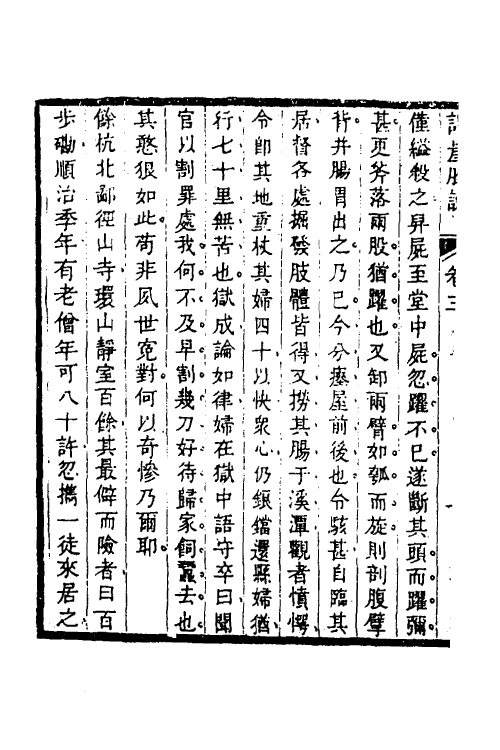 卷三
僅縊殺之舁屍至堂中屍忽躍不已遂斷其頭而躍彌
甚更斧落兩股猶躍也又卸兩臂如瓠而旋則剖腹擘
背并腸胃出之乃已今分瘞屋前後也令駭甚自臨其
居督各處掘發肢體皆得又撈其腸于溪潭觀者憤愕
令卽其地重杖其婦四十以快衆心仍鋃鐺還縣婦猶
行七十里無苦也獄成論如律婦在獄中語守卒曰聞
官以割罪處我何不及早割幾刀好待歸家飼蠶去也
其憨狠如此苟非夙世寃對何以奇慘乃爾耶
餘杭北鄙徑山寺環山靜室百餘其最僻而險者曰百
步磡順治季年有老僧年可八十許忽攜一徒來居之